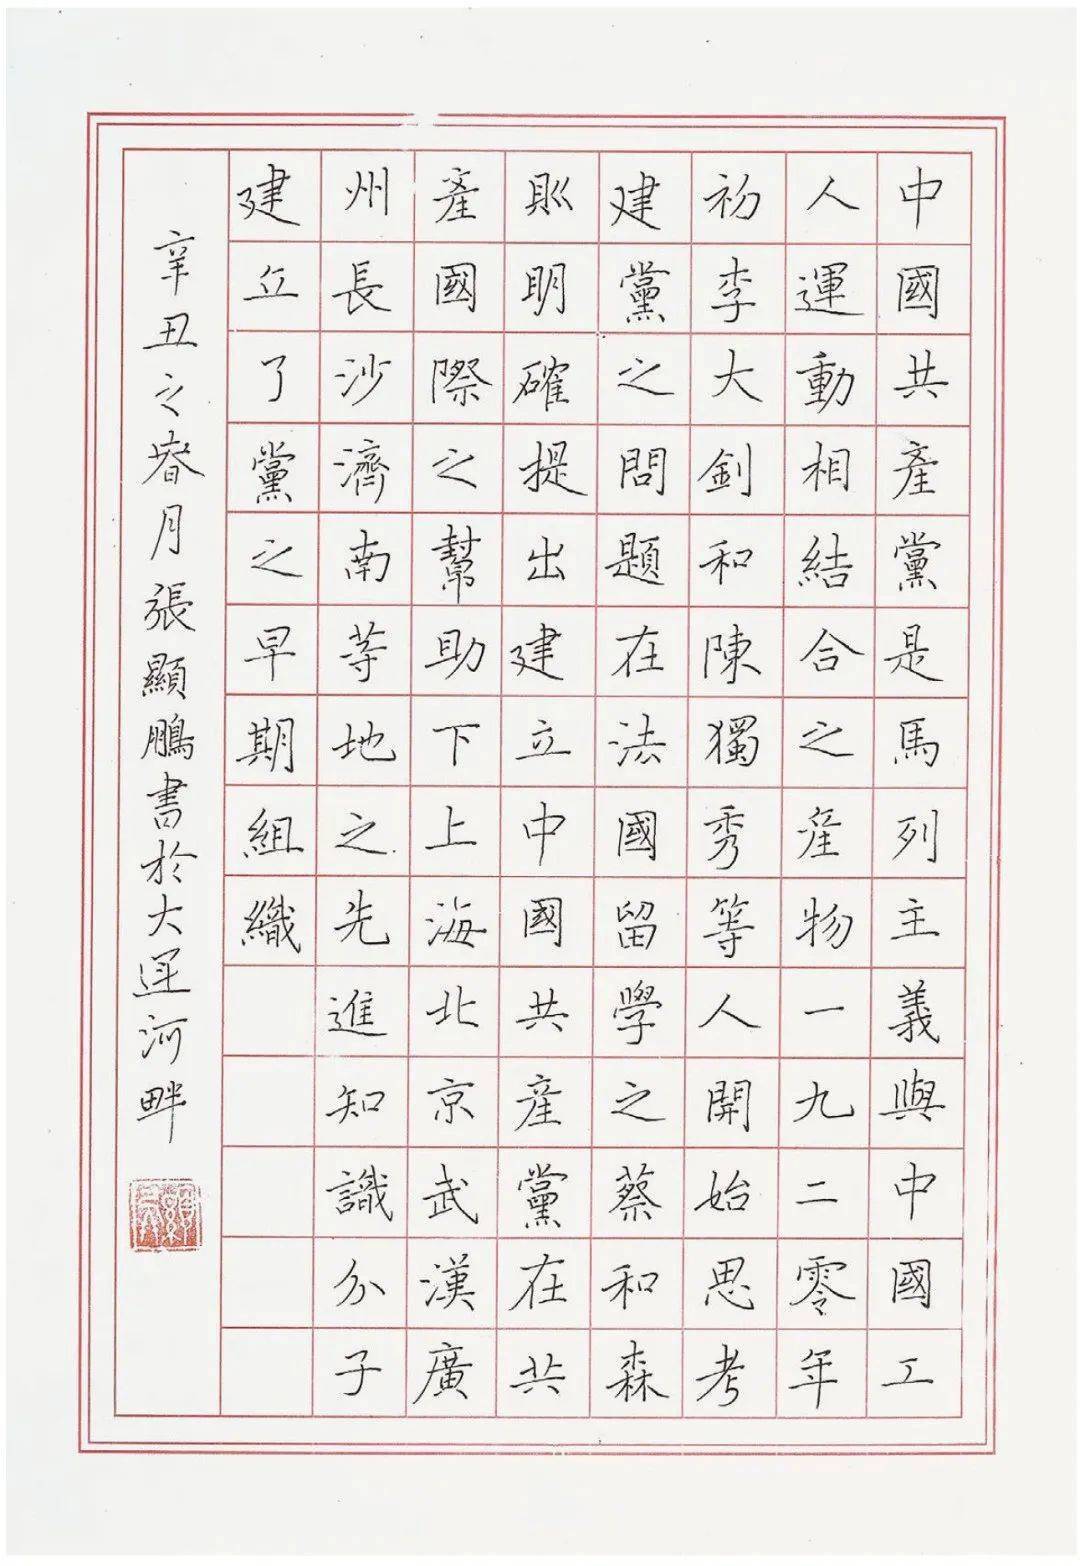 中國共產黨是馬列主義與中國工
人運動相結合之產物一九二零年
初李大釗和陳獨秀等人開始思考
建黨之問題在法國留學之蔡和森
則明確提出建立中國共產黨在共
產國際之幫助下上海北京武漢廣
州長沙濟南等地之先進知識分子
建立了黨之早期組織
辛丑之春月張顯鵬書於大運河畔